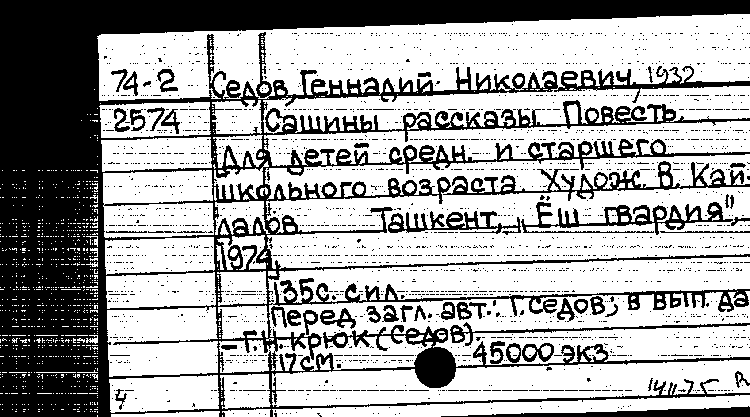 74-2 Седов, Геннадий Николаевич, 1932
2574 Сашины рассказы. Повесть.
Для детей средн. и старшего
школьного возраста. Худож. В. Кай-
далов. Ташкент, "Ёш гвардия",
1974.
135с. с ил.
Перед загл. авт.: Г. Седов; в вып. да
– Г.Н. Крюк (Седов).
17см. 45000 экз
4